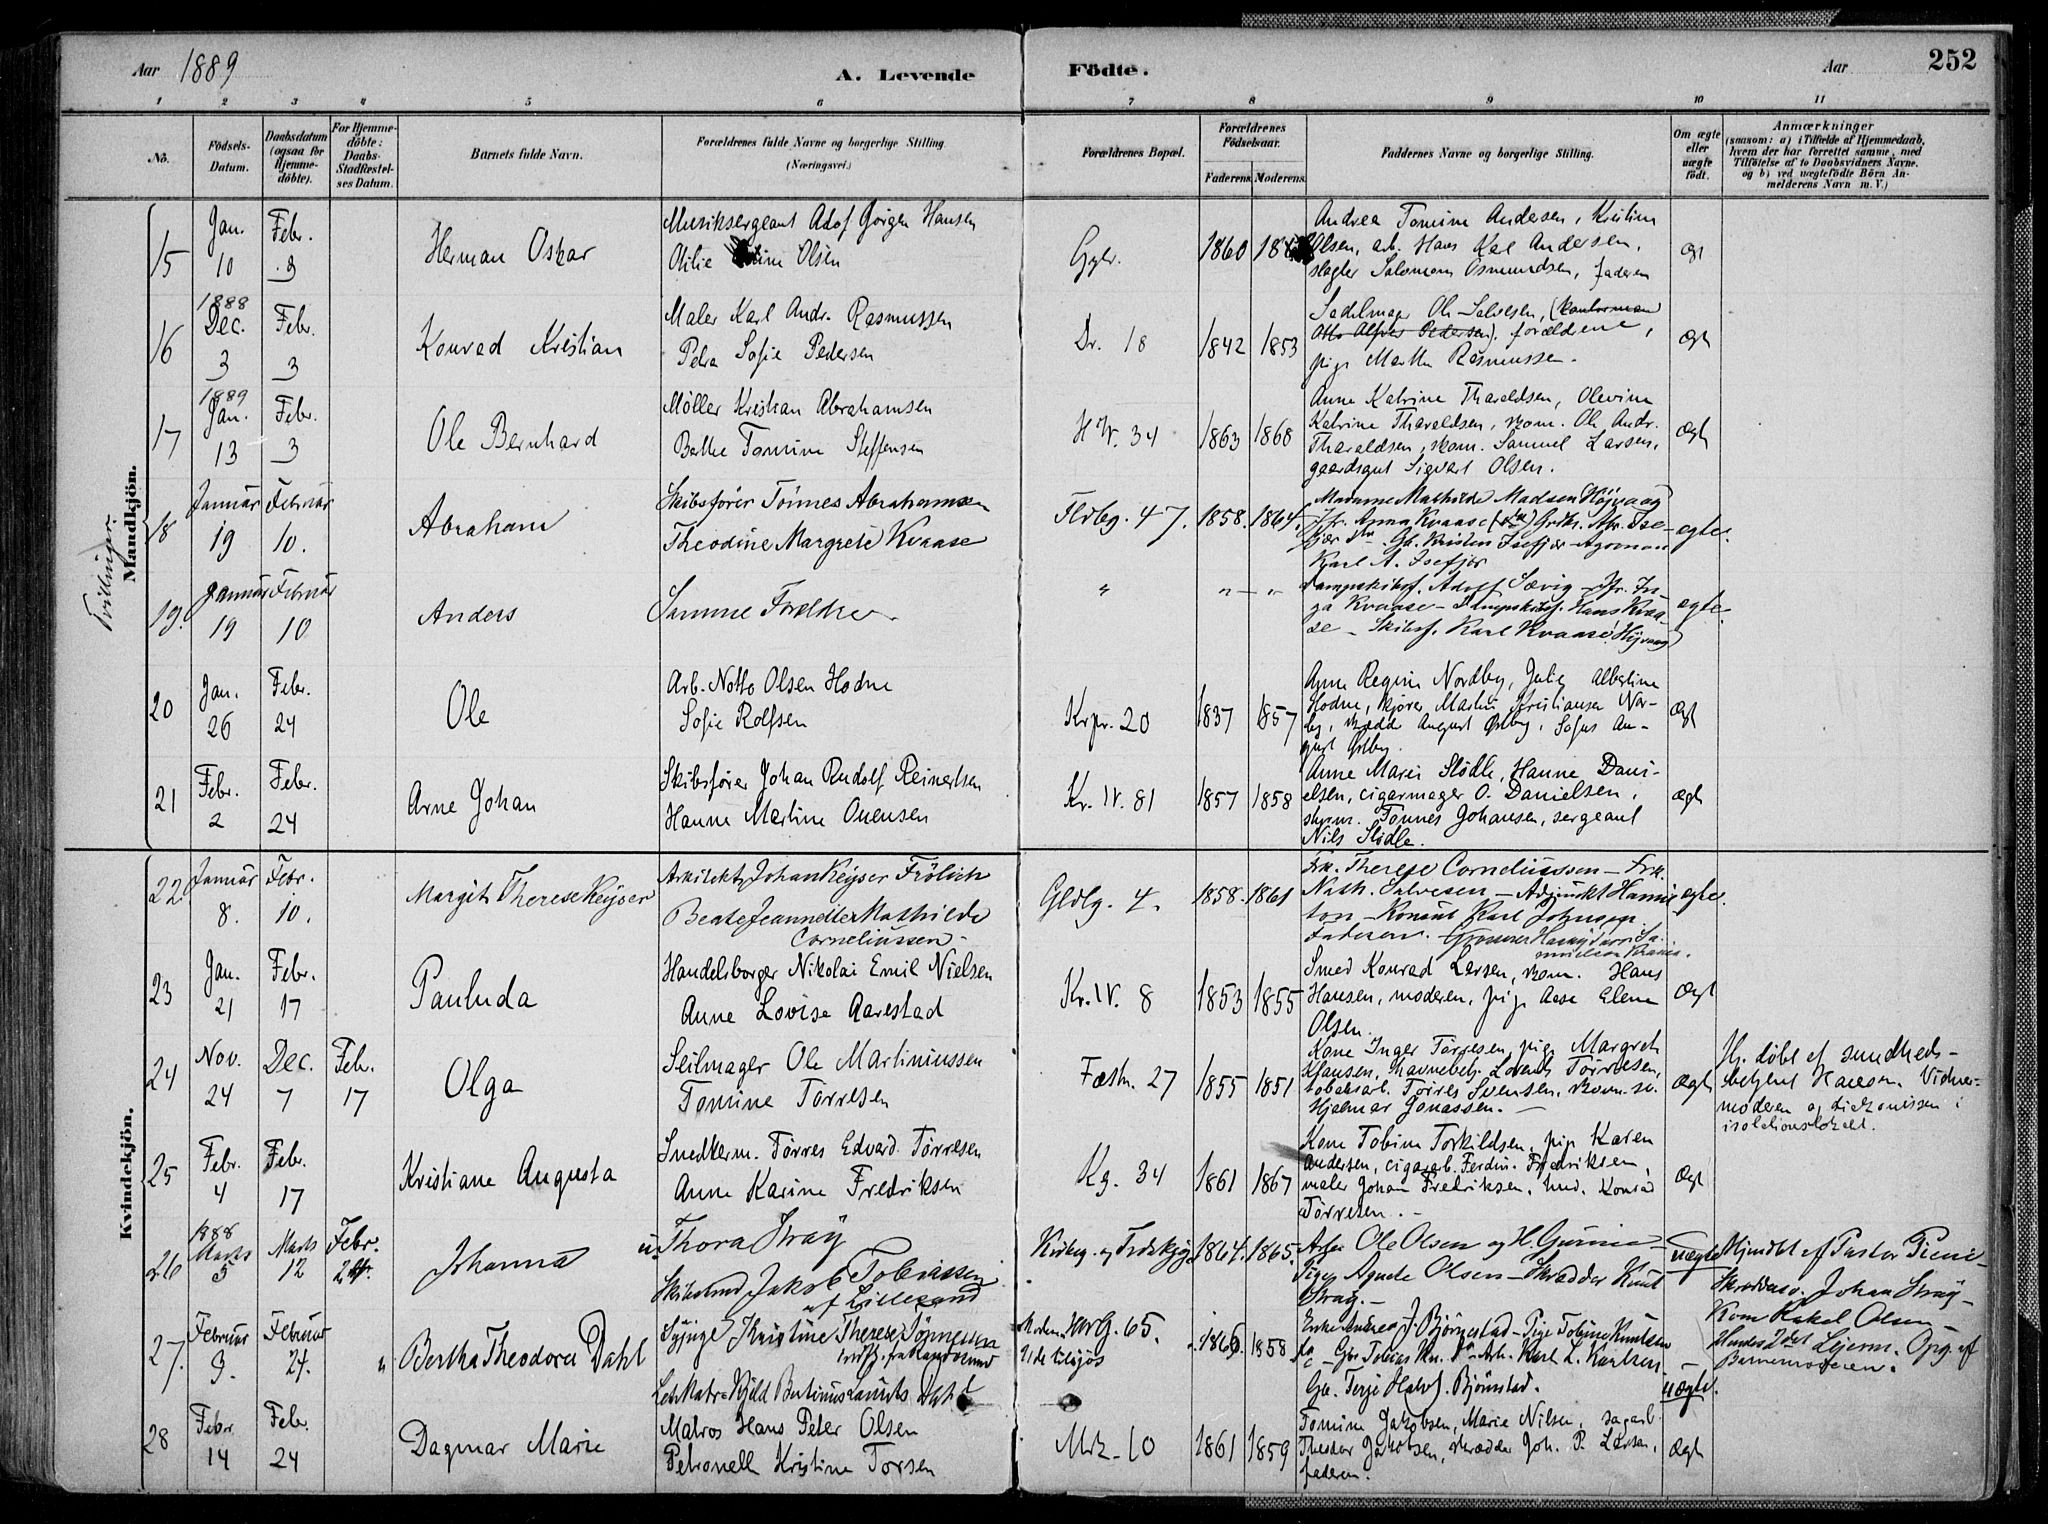 Aar 1889
A. Levende Födte.
Aar
252
1 2 3 4 5 6 7 8 9 10 11
No.
Födsels-Datum.
Daabsdatum (ogsaa for Hjemmedöbte).
For Hjemmedöbte: Daabs-Stadfæstelses Datum.
Barnets fulde Navn.
Forældrenes fulde Navne og borgerlige Stilling.
(Næringsvei.)
Forældrenes Bopæl.
Forældrenes Födselsaar.
Faderens. Moderens.
Faddernes Navne og borgerlige Stilling.
Om ægte eller uægte födt.
Anmærkninger
(saasom: a) i Tilfælde af Hjemmedaab, hvem der har forrettet samme, med Tilföielse af to Daabsvidners Navne, og b) ved uægtefödte Börn Anmelderens Navn m. V.)
Mandkjön.
Tvillinger
15 Jan. 10 Febr. 3 Herman Oskar
Musiksergeant Adof Görgen Hansen
Otilie Olsen
1860
Andrea Tomine Andersen, Kristine
Olsen, arb. Hans Karl Andersen,
slagter Salomon Osmundsen, faderen
16 1888 Dec. 3 Febr. 3 Konrad Kristian
Maler Karl Andr. Rasmussen
Petra Sofie Pedersen
Dr. 18 1842 1853
Sadelmager Ole Salvesen,
Otto Alfred Pedersen), forældrene,
pige Martha Rasmussen.
Ægt
17 1889 Jan. 13 Febr. 3 Ole Bernhard
Möller Kristian Abrahamsen
Bertha Tomine Steffensen
H.W. 34 1863 1868
Anne Katrine Tharaldsen, Olevine
Katrine Tharaldsen, kom. Ole Andr.
Tharaldsen, kom. Samuel Larsen,
gaardsgut Sigvart Olsen.
Ægt
18 Januar 19 Februar 10. Abraham
Skibsförer Tönnes Abrahamsen
Theodine Margrete Kvaase
Fldbg. 47. 1858. 1864.
Madame Mathilde Madsen Højvaag
Karl A. Isefjær
ægte.
19. Januar 19 Februar 10 Anders
Samme Foreldre
" " - "
Dampskibsf. Adolf Sævig - Jfr. In-
ga Kvaase - Dampskibsf. Hans Kvaa-
se - Skibsf. Karl Kvaase, Höjvaag
ægte.
20 Jan. 26 Febr. 24 Ole
Arb. Notto Olsen Hodne
Sofie Rolfsen
Krpr. 20 1837 1857
Anne Regine Nordby, Julie Albertine
Hodne, kjörer Martin Kristiansen Nor-
by, skredder August Östby, Sofus Au-
gust Östby.
Ægt
21 Febr. 2 Febr. 24 Arne Johan
Skibsförer Johan Rudolf Reinertsen
Hanne Martine Ouensen
Kr. W. 81 1857 1858
Anne Marie Slödle, Hanne Dani-
elsen, cigarmager O. Danielsen,
styrm. Tönnes Johansen, sergeant
Nils Slödle.
Ægt
Kvindekjön.
22 Januar 8. Febr. 10. Margit Therese Keyser
Arkitekt Johan Keyser Frölich
Beate Jeannette Mathilde
Corneliussen
Gldlg. 4. 1858. 1861
Frk. Therese Corneliussen - Frk.
Nath. Salvesen - Adjunkt Hamil-
ton - Konsul Karl Johnsen
Faderen.
ægte.
23 Jan. 21 Febr. 17 Pauluda
Handelsborger Nikolai Emil Nielsen
Anne Lovise Aarestad
Kr. W. 8 1853 1855
Smed Konrad Larsen, kom. Hans
Hansen, moderen, pige Aase Elene
Olsen.
Ægt
24 Nov. 24 Dec. 7 Febr. 17 Olga
Seilmager Ole Martiniussen
Tomine Törresen
Fæstn. 27 1855 1851
Kone Inger Törresen, pige Margrete
Klausen, havnebetj. Lorents Törresen,
tobaksarb. Törres Svensen,
Hjelmer Jonassen.
Ægt
Hj. döbt af sundheds-
betjent Hansen. Vidner
moderen og diakonissen i
isolationslokalet.
25 Febr. 4 Febr. 17 Kristiane Augusta
Snedkerm. Törres Edvard Törresen
Anne Karine Fredriksen
Kg. 34 1861 1867
Kone Tobine Torkildsen, pige Karen
Andersen, cigararb. Ferdin. Fredriksen,
maler Johan Fredriksen, snd. Konrad
Törresen.
Ægt
26 1888 Marts 5 Marts 12 Febr. Johanna
u. Thora Stray
Skibstmd Jakob Tobiassen
af Lillesand
1864. 1865.
Arb. Ole Olsen og H. Gurine
Pige Agnete Olsen - Skrædder Knut
Stray.
Uægte
Hjmdbt. af Pastor
Skrædders. Johan Stray
Kone Rakel Olsen
27. Februar 9. Februar 24. " Bertha Theodora Dahl
Sypige Kristine Therese Tönnessen
Moderen HWG. 65.
Fader tilsjös
1858
Arb. Karl L. Karlsen
Gb. Terje Halvs. Björnstad.
uægte.
Hendes 2det Leierm. Opg. af
Barnemoderen.
28 Febr. 14 Febr. 24 Dagmar Marie
Matros Hans Peter Olsen
Petronelle Kristine Torsen
Mrk. 10 1861 1859
Tomine Jakobsen, Marie Nilsen, sagarb.
Theodor Jakobsen, skrædder Joh. P. Larsen,
faderen.
Ægt